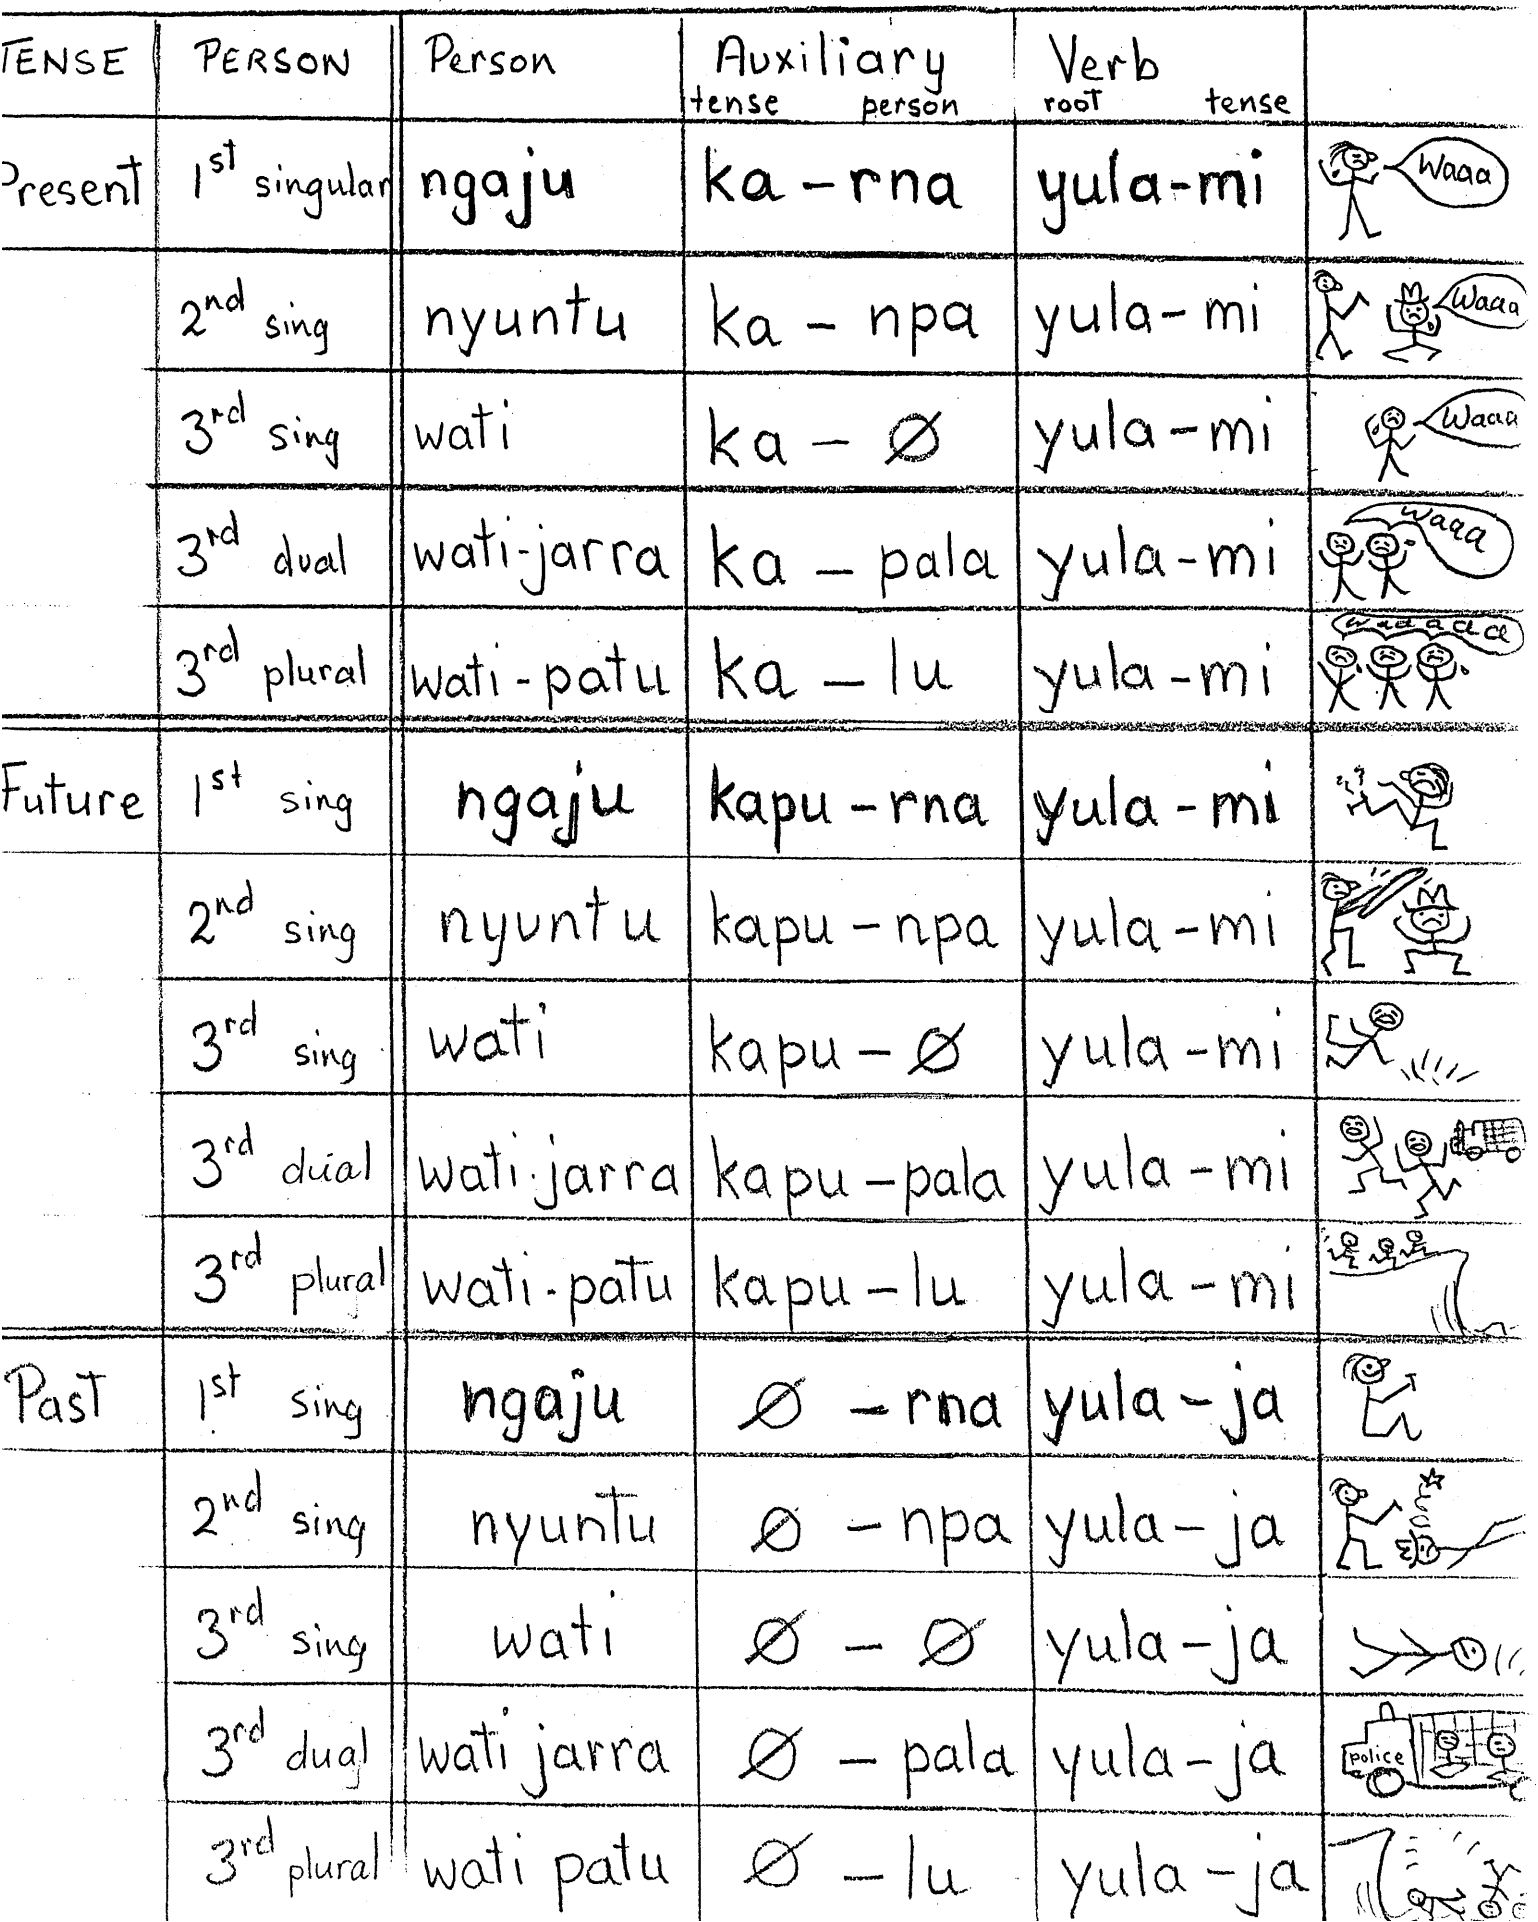 TENSE PERSON Person Auxiliary Verb
tense person root tense
Present 1st singular ngaju ka - rna yula - mi Waaa
2nd sing nyuntu ka - npa yula - mi Waaa
3rd sing wati ka - Ø yula - mi Waaa
3rd dual wati-jarra ka - pala yula - mi Waaa
3rd plural wati - patu ka - lu yula - mi Waaaaa
Future 1st sing ngaju kapu - rna yula - mi
2nd sing nyuntu kapu - npa yula - mi
3rd sing wati kapu - Ø yula - mi
3rd dual wati-jarra kapu - pala yula - mi
3rd plural wati - patu kapu - lu yula - mi
Past 1st sing ngaju Ø - rna yula - ja
2nd sing nyuntu Ø - npa yula - ja
3rd sing wati Ø - Ø yula - ja
3rd dual wati jarra Ø - pala yula - ja police
3rd plural wati patu Ø - lu yula - ja